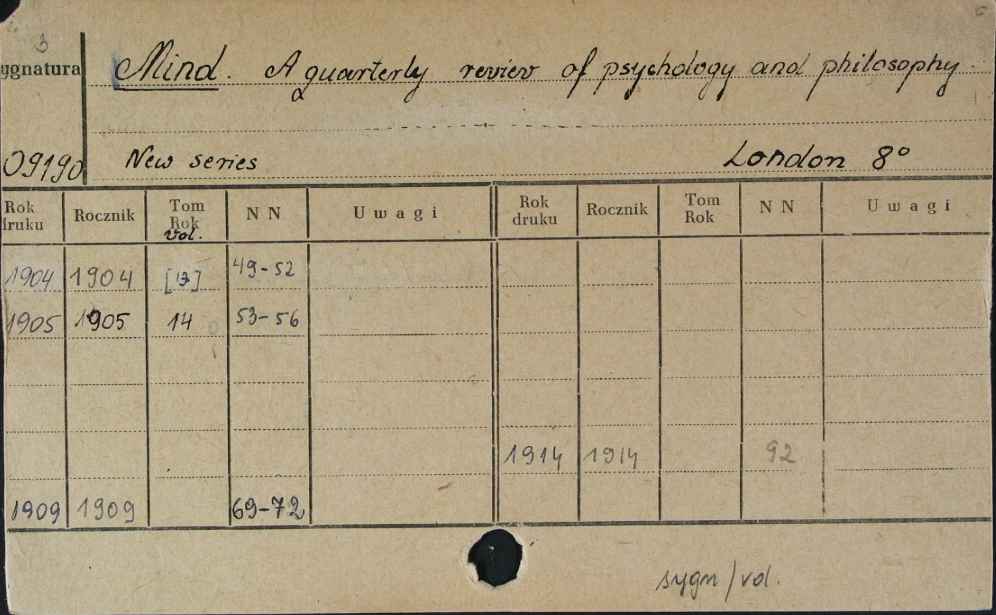 3
ygnatura Mind. A quarterly review of psychology and philosophy.
09190 New series London 8°
Rok druku Rocznik Tom Rok vol. N N Uwagi Rok druku Rocznik Tom Rok N N Uwagi
1904 1904 [13] 49-52
1905 1905 14 53-56
1914 1914 92
1909 1909 69-72
sygn/vol.